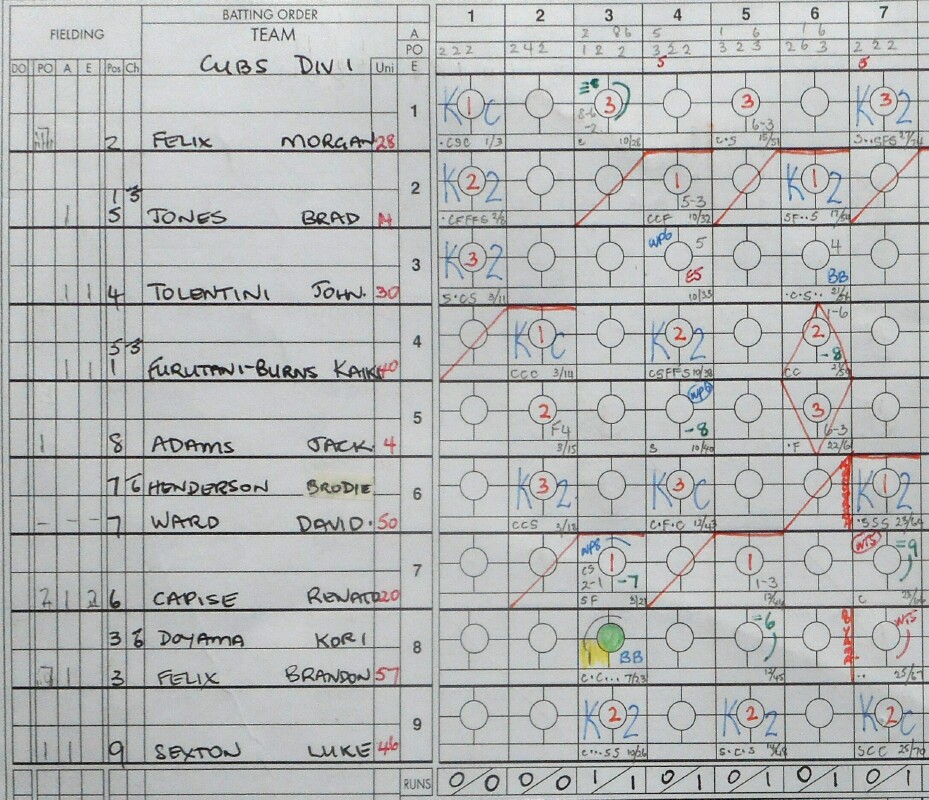 BATTING ORDER
FIELDING
TEAM
A
PO
E
DO PO A E Pos Ch
CUBS DIV 1 Uni
1 2 3 4 5 6 7
2 8 6 5 1 6 1 6
2 2 2 2 4 2 1 2 2 3 2 2 3 2 3 2 6 3 2 2 2
5 5
1
2 FELIX MORGAN 28
K 1 C
3
3
6-3
K 3 2
2
1 3
5 JONES BRAD
1
K 2 2
CFFFS
1
5-3
CCF 10/32
K 1 2
3
1 1 4 TOLENTINI JOHN. 30
K 3 2
S·CS 3/11
WP6 5
E5
10/33
4
BB
4
5 3
1 1 1 FURUTANI-BURNS KAIK 40
K 1 C
CCC 3/14
K 2 2
CSFFS 10/38
1-6
2
-8
CC
5
1 8 ADAMS JACK. 4
2
F4
3/15
WP8
-8
S 10/40
3
6-3
·F 22/6
6
7 6 HENDERSON BRODIE
- - - 7 WARD DAVID· 50
K 3 2
CCS
K 3 C
C·F·C 12/43
K 1 2
·SSS 23/64
7
2 1 2 6 CAPISE RENATO 20
WP8
CS
2-1
1
-7
SF 3/21
1
1-3
WTS
=9
C
8
3 6 DOYAMA KORI
3 FELIX BRANDON 57
4
BB
C·C... 7/23
=6
12/45
WTS
·· 25/67
9
1 1 9 SEXTON LUKE 46
K 2 2
C··SS 10/26
K 2 2
S·C·S
K 2 C
SCC 25/70
RUNS 0/0 0/0 1/1 0/1 0/1 0/1 0/1